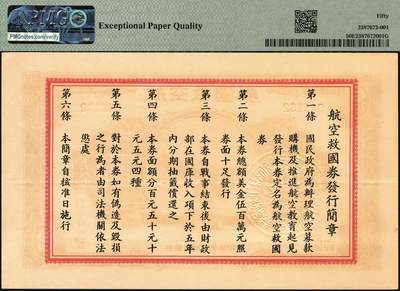 PMG
PMGnotes.com/verify
Exceptional Paper Quality
Fifty
2387672-001
50E2387672001G
航空救國券發行簡章
第一條 國民政府為辦理航空募款
購機及推進航空教育起見
發行本券定名為航空救國
券
第二條 本券總額美金伍百萬元照
券面十足發行
第三條 本券自戰事結束後由財政
部在國庫收入項下於五年
內分期抽籤償還之
第四條 本券面額分百元五十元十
元五元四種
第五條 對於本券如有偽造及毀損
之行為者由司法機關依法
懲處
第六條 本簡章自核准日施行